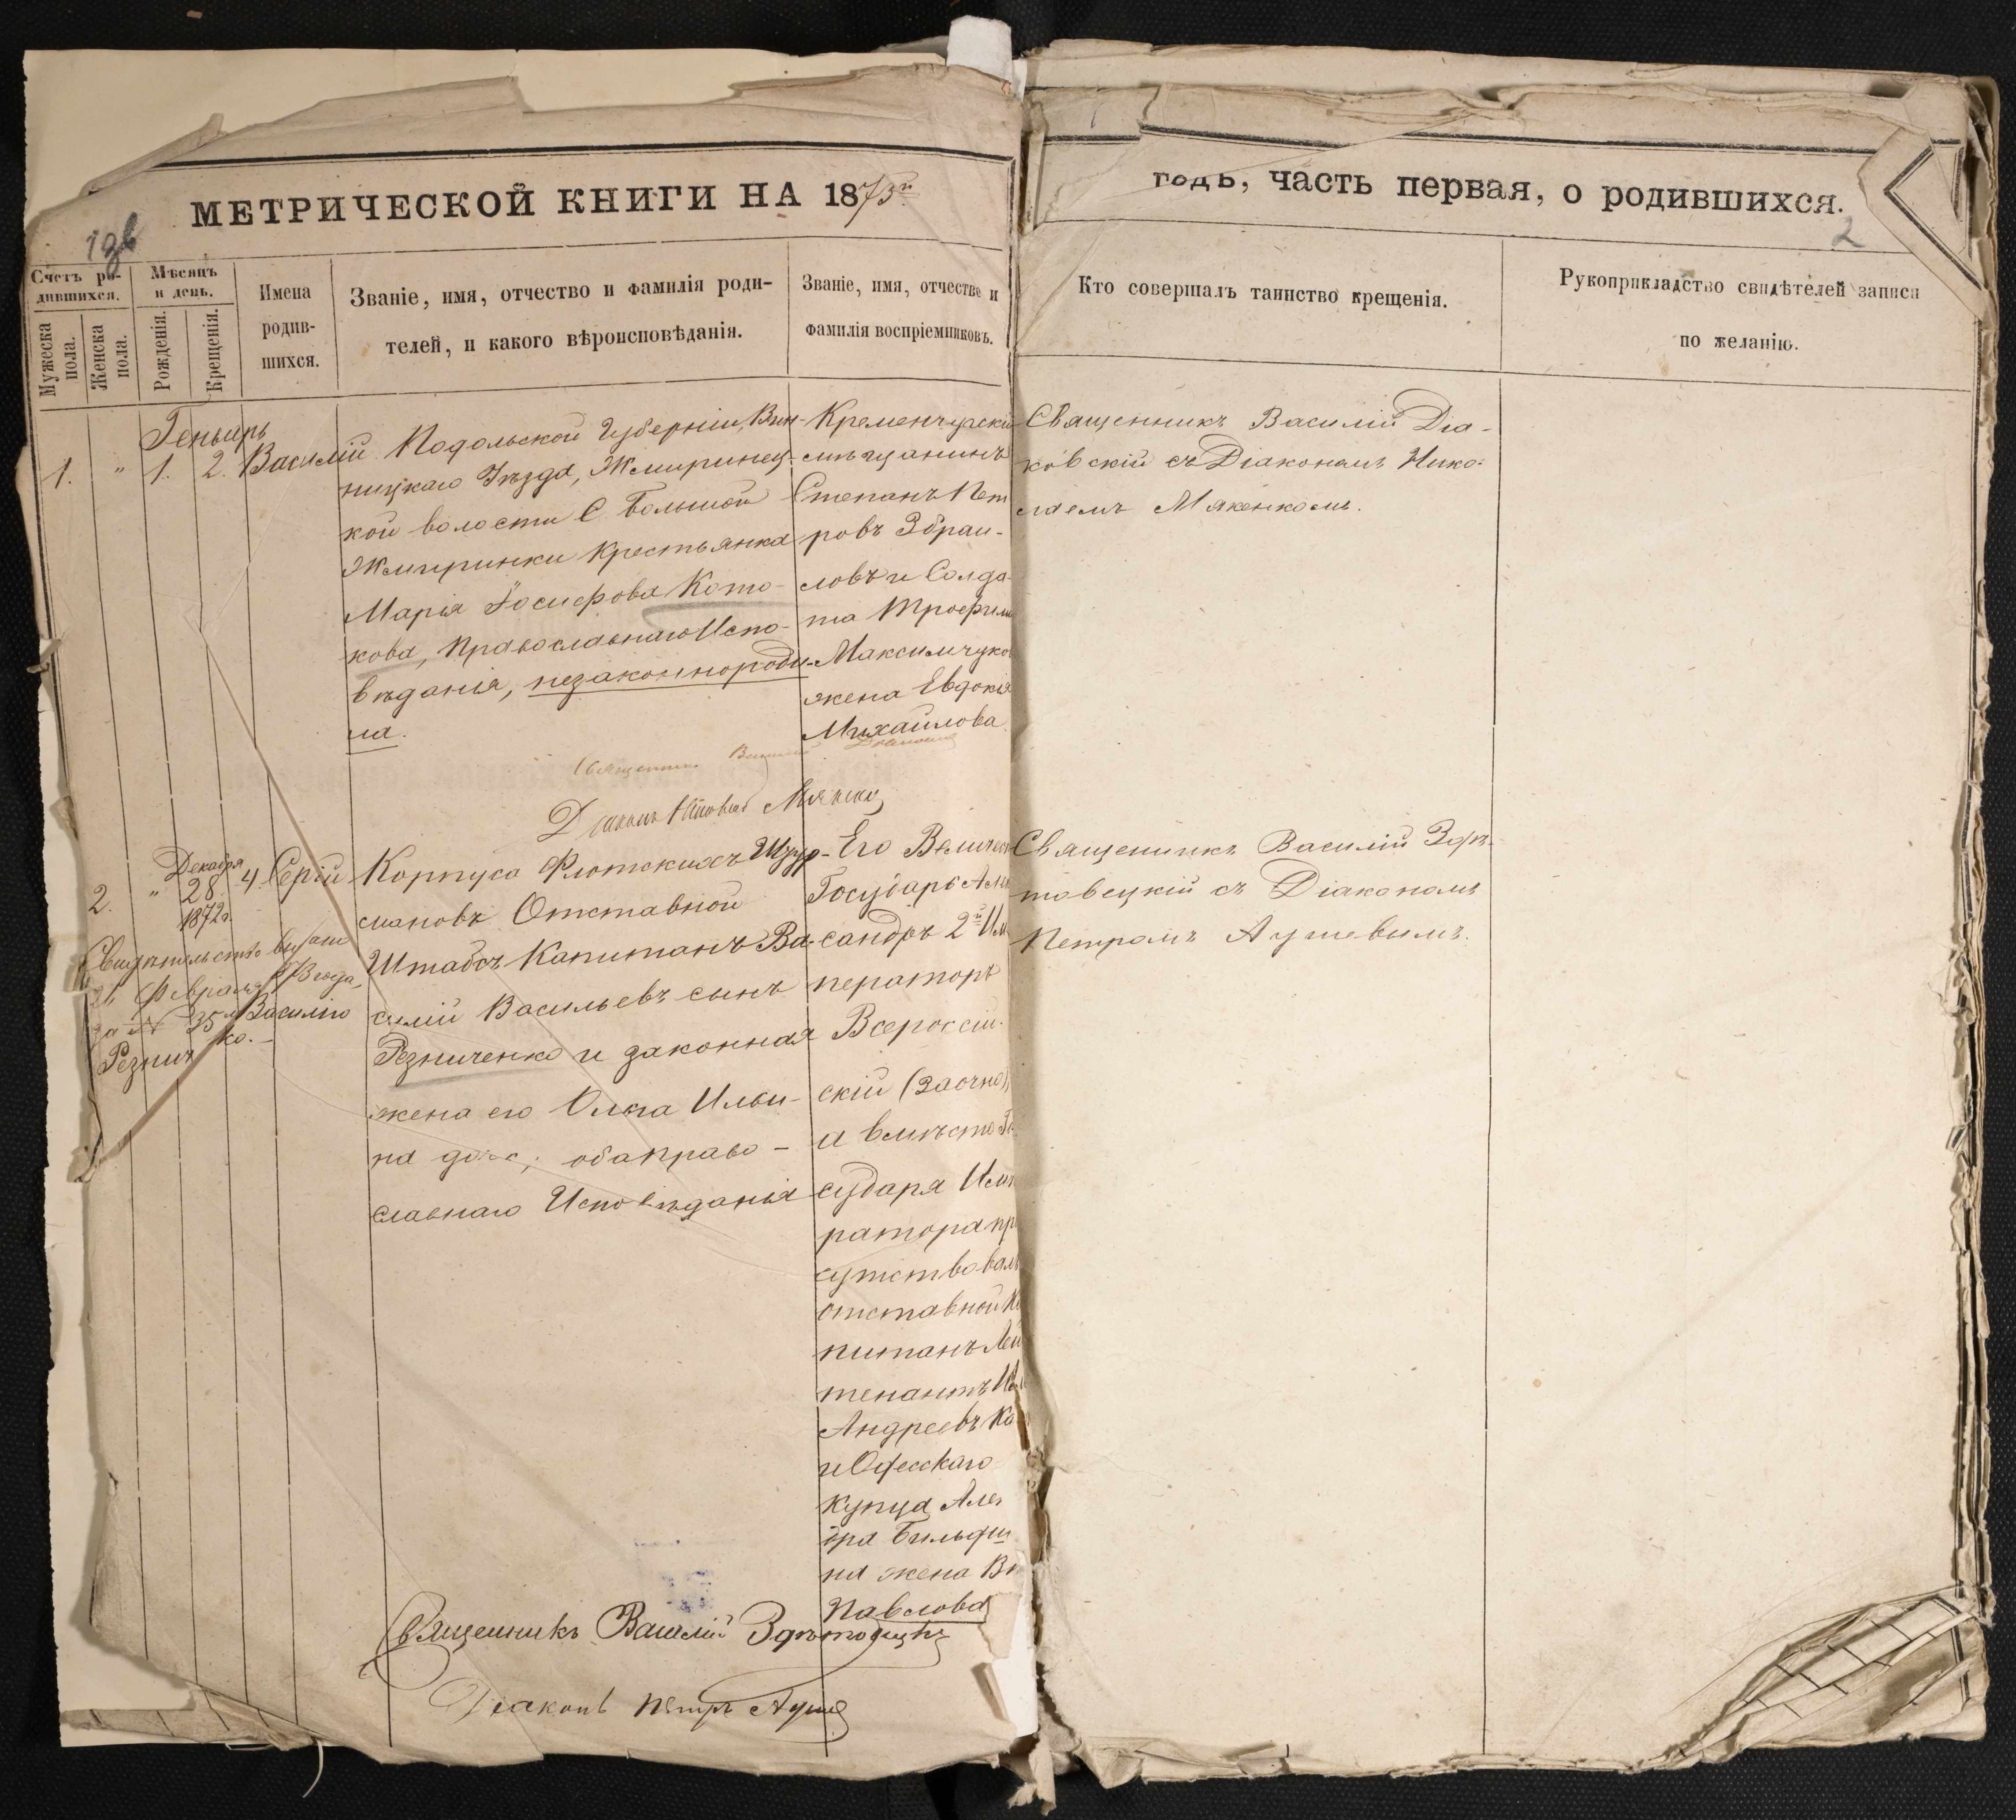 МЕТРИЧЕСКОЙ КНИГИ НА 1873й
годъ, часть первая, о родившихся.
2
Счетъ ро-
дившихся.
Мужеска пола.
Женска пола.
Мѣсяцъ
и день.
Рожденія.
Крещенія.
Имена
родив-
шихся.
Званіе, имя, отчество и фамилія роди-
телей, и какого вѣроисповѣданія.
Званіе, имя, отчество и
фамилія воспріемниковъ.
Кто совершалъ таинство крещенія.
Рукоприкладство свидѣтелей записи
по желанію.
Геньарь
1. " 1. 2. Василій
Подольской Губерніи, Вин-
ницкаго Уѣзда, Жмиринец-
кой волости С. Большой
Жмиринки крестьянка
Марія Іосифова Кото-
кова, Православнаго Испо-
вѣданія, незаконнороди-
ла.
Кременчугскій
мѣщанинъ
Степанъ Пет
ровъ Збраи-
ловъ и Солда-
та Трофим
Максимчуко
жена Евдокія
Михайлова
Священникъ Василій Діа-
ковскій съ Діакономъ Нико-
лаемъ Мякенкомъ.
Священникъ Василій
Діаконъ
Декабря
2. " 28 4. Сергій
1872г.
Свидѣтельство выдано
Февраля 1873 года,
за № 35м Василію
Резнич ко.
Корпуса Флотскихъ Штур-
мановъ Отставной
Штабсъ Капитанъ Ва-
силій Васильевъ сынъ
Резниченко и законная
жена его Ольга Ильи-
на дочь, оба право-
славнаго Исповѣданія
Его Величес
Государь Але
сандръ 2й Им
ператоръ
Всероссій-
скій (заочно),
а вмѣсто Го
сударя Импе
ратора при
сутствовалъ
отставной Ка
питанъ Лей
тенантъ
Андреевъ Ко
и Одесскаго
купца Алек
дра Бильфи
на жена
Павлова
Священникъ Василій Здѣ-
товецкій съ Діакономъ
Петромъ Аушевымъ.
Священникъ Василій Здѣтовецкій
Діаконъ Петръ Ауше